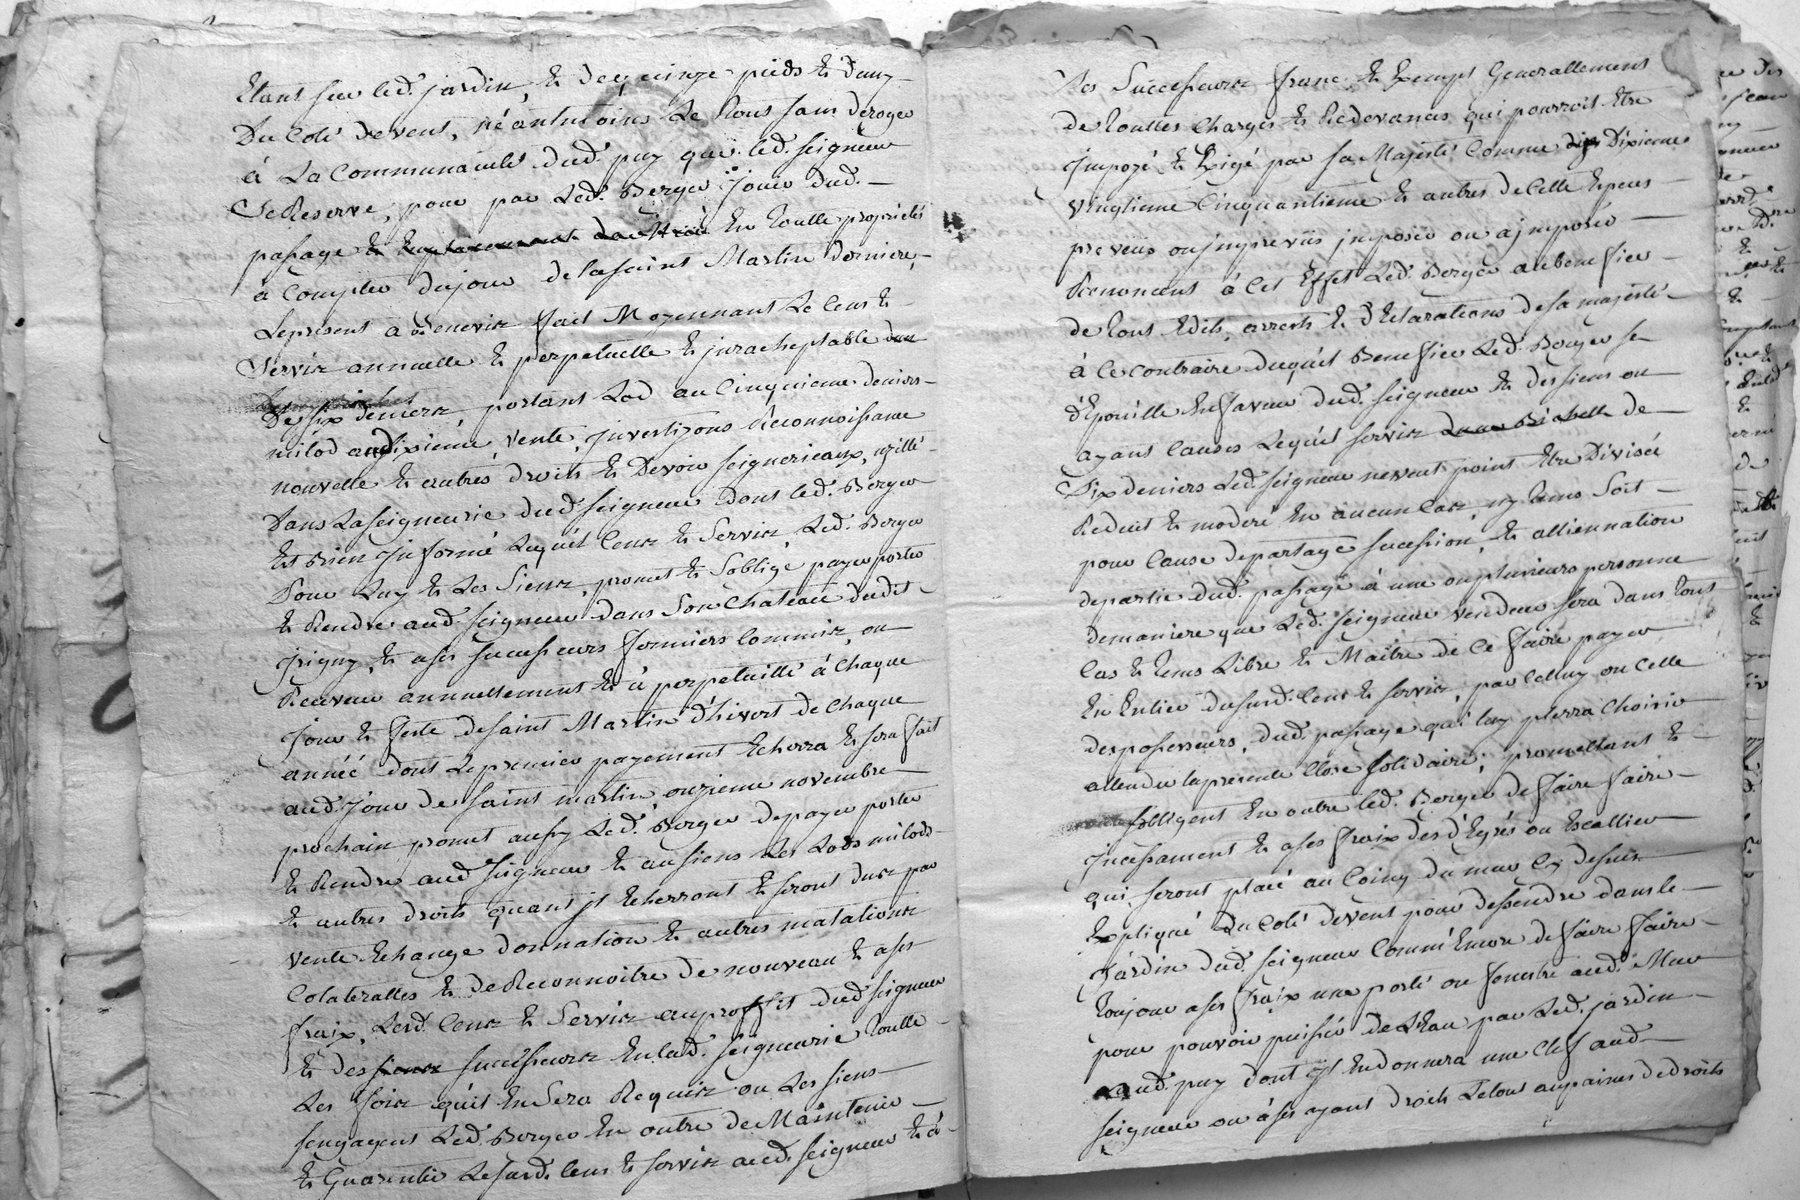 Etant sur led. jardin, et de quinze pieds et demy
Du Coté de vent, néantmoins Le Tout sans deroger
à La Communauté dud. puy que led. seigneur
Se Reserve, pour par Led. Berger jouir dud.
passage et En Toutte proprieté
à Compter du jour de la saint Martin derniere,
Le present abenevix fait Moyennant Le Cens et
Servix annuelle et perpetuelle et jnracheptable
De six deniers portant Lod au Cinquieme deniers
milod au dixieme, vente, jnvestizons Reconnoissance
nouvelle et autres droits et Devoir seignerieaux, uzitté
Dans La seigneurie dud seigneur Dont led. Berger
Est Bien jnformé Lequel Cens et Servix Led. Berger
Pour Luy et Les Siens, promet et S'obligé payer porter
et Rendre aud. seigneur dans Son Chateau dudit
jrigny, et a ses successeurs fermiers Commis, ou
Receveur annuellement et à perpetuitté à Chaque
jour et feste de saint Martin d'hivert de Chaque
année dont Le premier payement Echerra Et sera fait
aud. jour de saint martin onzieme novembre
prochain promet aussy Led. Berger de payer porter
et Rendre aud seigneur et au siens Les Lods milods
et autres droits quant jl Echerront et seront dues par
vente Echange donnation et autres mutations
Colateralles et de Reconnoitre de nouveau et a ses
fraix, Lesd. Cens et Servix au proffit dud seigneur
et des siens successeurs En lad. seigneurie Toutte
Les fois qu'il En Sera Requis ou Les siens
s'engagent Led. Berger En outre de Maintenir
et Guarentir Le surd. Cens et servix aud. seigneur et à
Ses Successeurs franc et Exempt Generallement
de Touttes Charges et Redevances qui pourroit Etre
jmpozé et Exigé par sa Majesté Comme Dixieme
vingtieme Cinquantieme et autres de Celle Especes
preveüs ou jmpreviis jmposée ou a jmposée
Renoncent à Cet Effet Led. Berger au beneffice
de Tous Edits, arrests et d'Eclarations de sa majesté
à Ce Contraire duquel Beneffice Led. Berger se
d'Epouille En faveur dud. seigneur et des siens ou
ayans Causes Lequel servix de
Six deniers Led. seigneur ne veut point Etre Divisée
Reduit et moderé En aucun Cas, ny Tems Soit
pour Cause de partage succession, et alliennation
de partie dud. passage à une ou plusieurs personne
de maniere que Led. seigneur vendeur sera dans Tous
Cas et Tems Libre et Maitre de Ce faire payer
En Entier du surd. Cens et servix, par Celluy ou Celle
des possesseurs, dud. passage qu'il luy plerra Choisir
attendu la presente Close solidaire, promettant et
s'obligent En outre led. Berger de faire faire
jncessament et a ses fraix des d'Egrés ou Escallier
qui seront placé au Coing du mur Cy dessus
Expliqué du Coté de vent pour dessendre dans le
Jardin dud. seigneur Comm'Encore de faire faire
Toujour a ses fraix une porte ou fenestre aud. Mur
pour pouvoir puiser de L'Eau par Led. jardin
aud. puy dont jl En donnera une Cleff aud
seigneur ou à ses ayant droits Le tout aux peines de droits